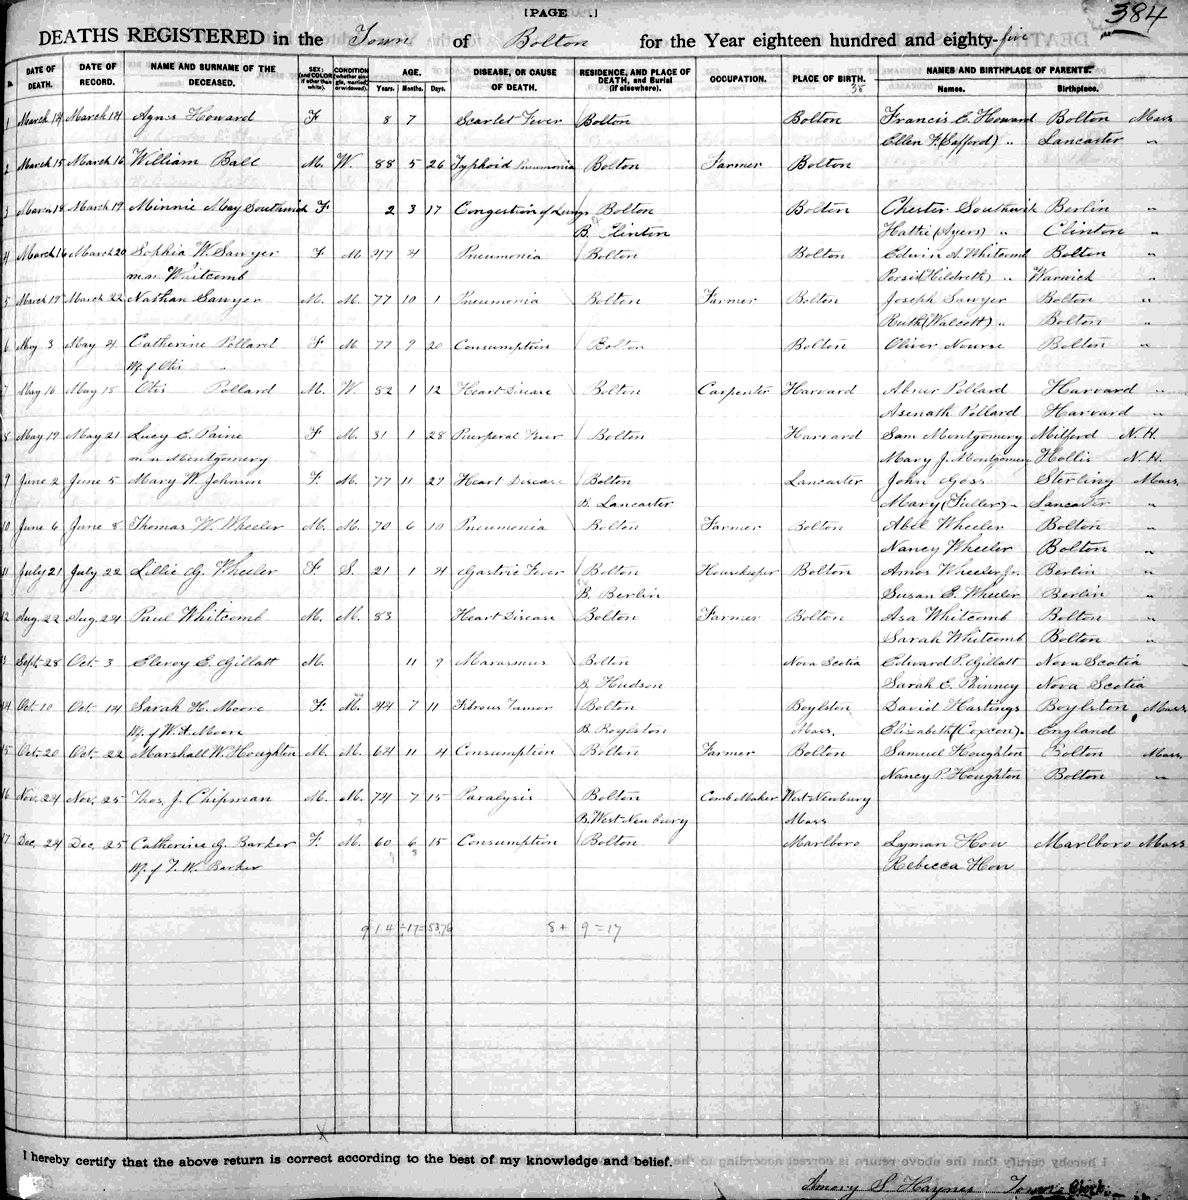 [PAGE .]
384
DEATHS REGISTERED in the Town of Bolton for the Year eighteen hundred and eighty-five
No. DATE OF DEATH. DATE OF RECORD. NAME AND SURNAME OF THE DECEASED. SEX; (and COLOR if other than white). CONDITION (whether single, married, or widowed). AGE. Years. Months. Days. DISEASE, OR CAUSE OF DEATH. RESIDENCE, AND PLACE OF DEATH, and Burial (if elsewhere). OCCUPATION. PLACE OF BIRTH. NAMES AND BIRTHPLACE OF PARENTS. Names. Birthplace.
38
1 March 14 March 14 Agnes Howard F 8 7 Scarlet Fever Bolton Bolton Francis E. Howard Bolton Mass
Ellen F. (Safford) " Lancaster "
2 March 15 March 16 William Ball M. W. 88 5 26 Typhoid Pneumonia Bolton Farmer Bolton
3 March 18 March 19 Minnie May Southwick F 2 3 17 Congestion of Lungs Bolton Bolton Chester Southwick Berlin "
B. Clinton Hattie (Ayers) " Clinton "
4 March 16 March 20 Sophia W. Sawyer F M 47 4 Pneumonia Bolton Bolton Edwin A. Whitcomb Bolton "
m.n. Whitcomb Persis (Hildreth) " Warwick "
5 March 19 March 22 Nathan Sawyer M. M. 77 10 1 Pneumonia Bolton Farmer Bolton Joseph Sawyer Bolton "
Ruth (Walcott) " Bolton "
6 May 3 May 4 Catherine Pollard F M. 77 9 20 Consumption Bolton Bolton Oliver Nourse Bolton "
Wf. of Otis "
7 May 16 May 18 Otis Pollard M. W. 82 1 12 Heart Disease Bolton Carpenter Harvard Abner Pollard Harvard "
Asenath Pollard Harvard "
8 May 19 May 21 Lucy E. Paine F M. 31 1 28 Puerperal Fever Bolton Harvard Sam Montgomery Milford N.H.
m n Montgomery Mary J. Montgomery Hollis N.H.
9 June 2 June 5 Mary W. Johnson F. M. 77 11 27 Heart Disease Bolton Lancaster John Goss Sterling Mass.
B. Lancaster Mary (Fuller) " Lancaster "
10 June 6 June 8 Thomas W. Wheeler M. M. 70 6 10 Pneumonia Bolton Farmer Bolton Abel Wheeler Bolton "
Nancy Wheeler Bolton "
11 July 21 July 22 Lillie G. Wheeler F S. 21 1 4 Gastric Fever Bolton Housekeeper Bolton Amos Wheeler Jr. Berlin "
B. Berlin Susan E. Wheeler Berlin "
12 Aug. 22 Aug. 24 Paul Whitcomb M. M. 83 Heart Disease Bolton Farmer Bolton Asa Whitcomb Bolton "
Sarah Whitcomb Bolton "
13 Sept. 28 Oct. 3 Cleroy E. Gillatt M. 11 9 Marasmus Bolton Nova Scotia Edward P. Gillatt Nova Scotia
B. Hudson Sarah E. Phinney Nova Scotia
14 Oct. 10 Oct. 14 Sarah H. Moore F. M. 44 7 11 Fibrous Tumor Bolton Boylston David Hastings Boylston Mass.
Wf. of W. A. Moore B. Boylston Mass. Elizabeth (Coxson) " England
15 Oct. 20 Oct. 22 Marshall W. Houghton M. M. 64 11 4 Consumption Bolton Farmer Bolton Samuel Houghton Bolton Mass.
Nancy P. Houghton Bolton "
16 Nov. 24 Nov. 25 Thos. J. Chipman M. M. 74 7 15 Paralysis Bolton Comb Maker West-Newbury
B. West-Newbury Mass
17 Dec. 24 Dec. 25 Catherine G. Barker F. M. 60 6 15 Consumption Bolton Marlboro Lyman How Marlboro Mass
Wf. of F. W. Barker Rebecca How
914 ÷ 17 = 53.76 8 + 9 = 17
X
I hereby certify that the above return is correct according to the best of my knowledge and belief.
Amory S. Haynes Town Clerk